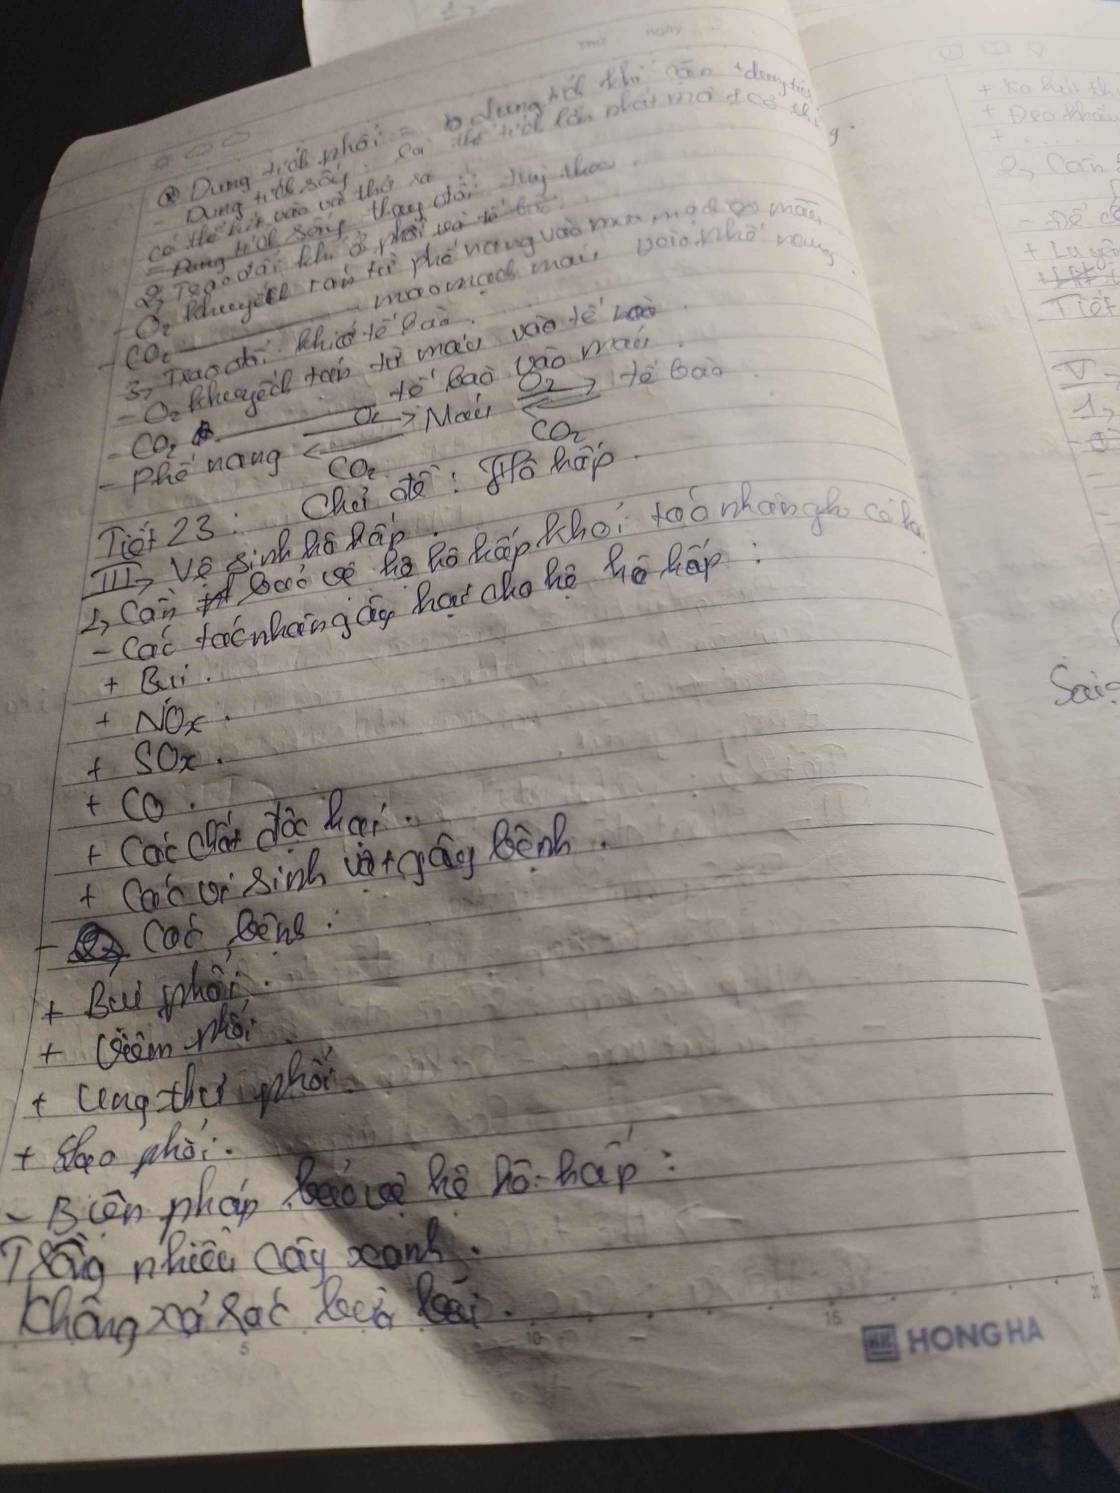 Thứ Ngày
* Dung tích phổi = dung tích khí cặn + dung tích
- Dung tích sống: là thể tích lớn nhất mà 1 cơ thể
có thể hít vào và thở ra
- Dung tích sống thay đổi tuỳ theo
2, Trao đổi khí ở phổi và tế bào
- O2 khuyếch tán từ phế nang vào mao mạch máu
- CO2 mao mạch máu vào phế nang
3, Trao đổi khí ở tế bào.
- O2 khuyếch tán từ máu vào tế bào.
- CO2 tế bào vào máu.
- Phế nang O2 CO2 Máu O2 CO2 tế bào
Tiết 23: Chủ đề: Hô hấp.
III, Vệ sinh hô hấp.
1, Cần bảo vệ hệ hô hấp khỏi tác nhân gh có hại
- Các tác nhân gây hại cho hệ hô hấp:
+ Bụi.
+ NOx.
+ SOx.
+ CO.
+ Các chất độc hại.
+ Các vi sinh vật gây bệnh.
- Các bệnh:
+ Bụi phổi.
+ Viêm phổi
+ Ung thư phổi
+ Lao phổi.
- Biện pháp bảo vệ hệ hô hấp:
Trồng nhiều cây xanh.
Không xả rác bừa bãi.
5 10 15
HONG HA
+ Đeo khẩu
2, Cần
- Để
+ Luyện
Tiết
V -
1,